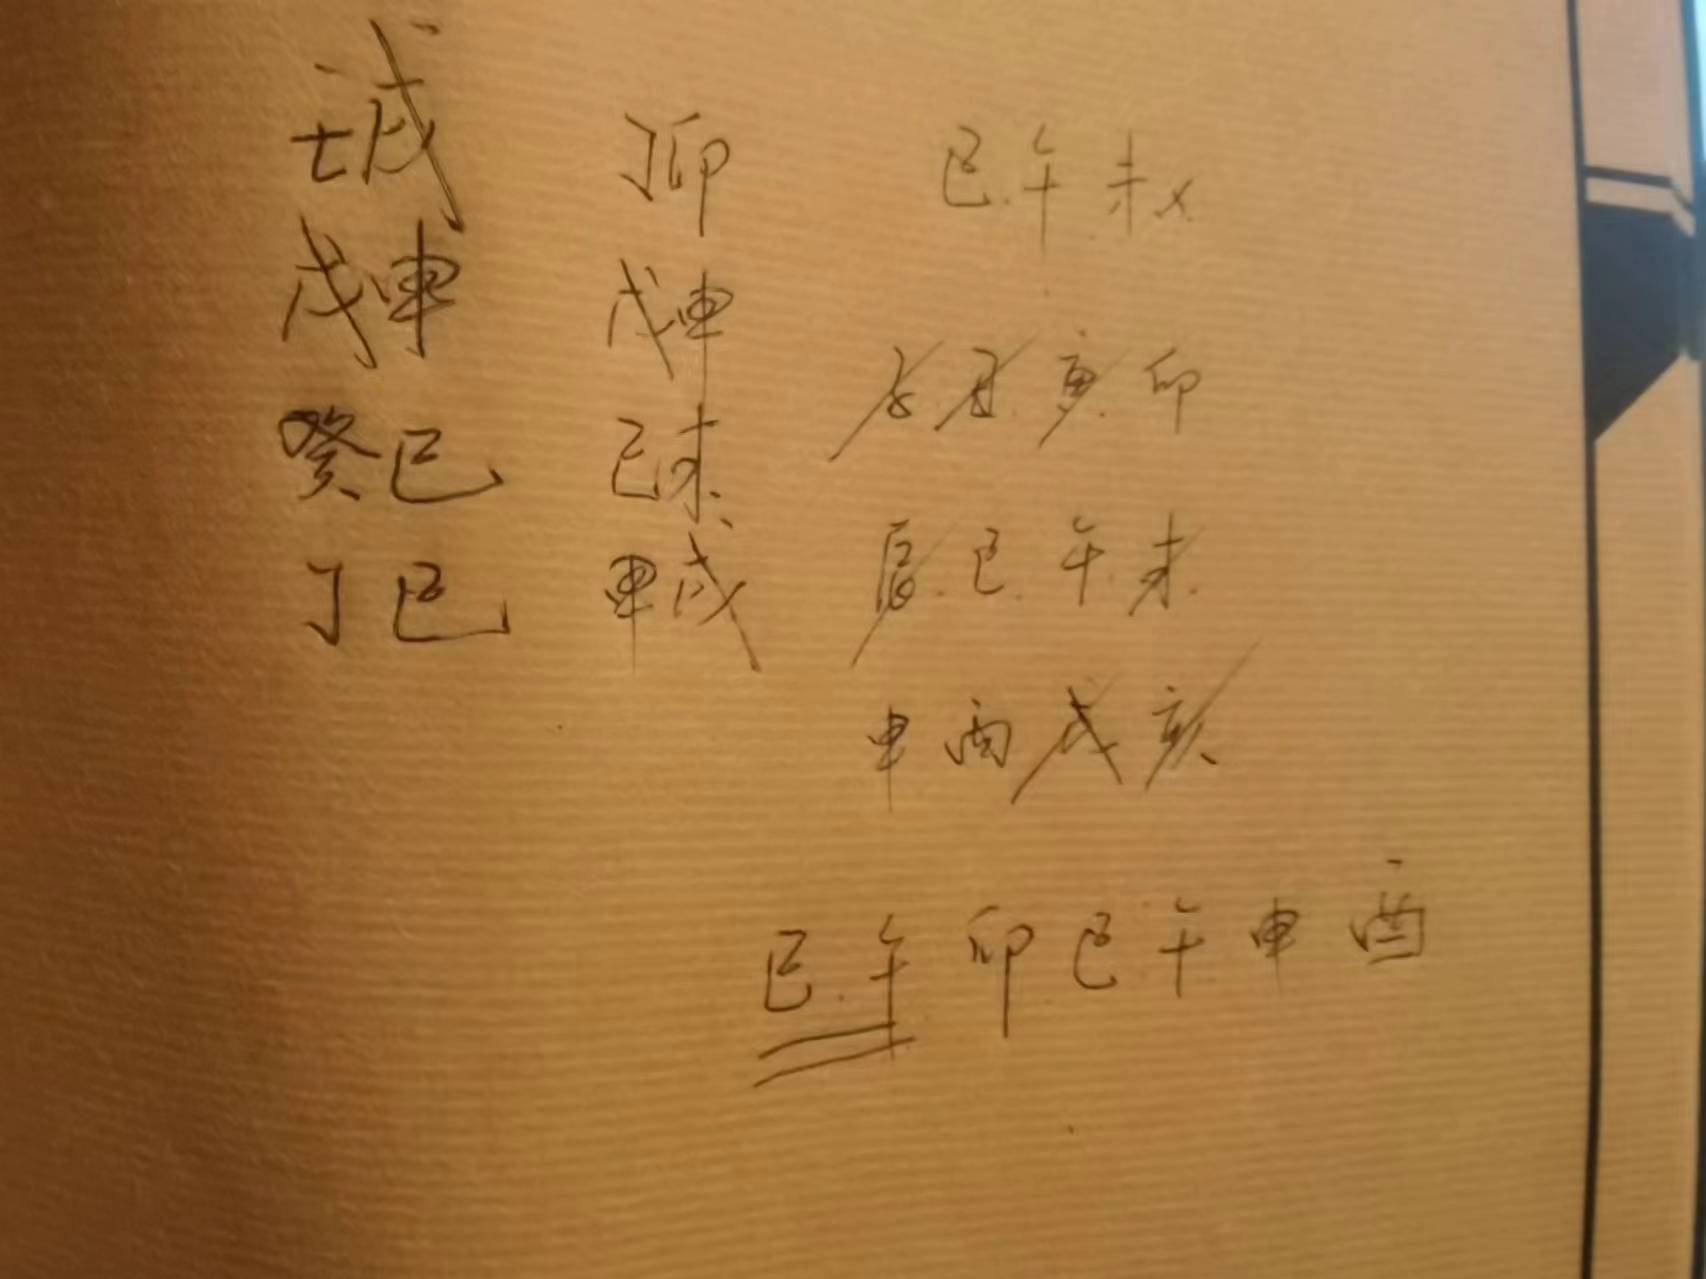 壬戌
戊申
癸巳
丁巳
丁卯
戊申
己未
甲戌
巳.午.未x
子.丑.寅.卯
辰.巳.午.未.
申酉戌亥
巳.午卯巳午申酉